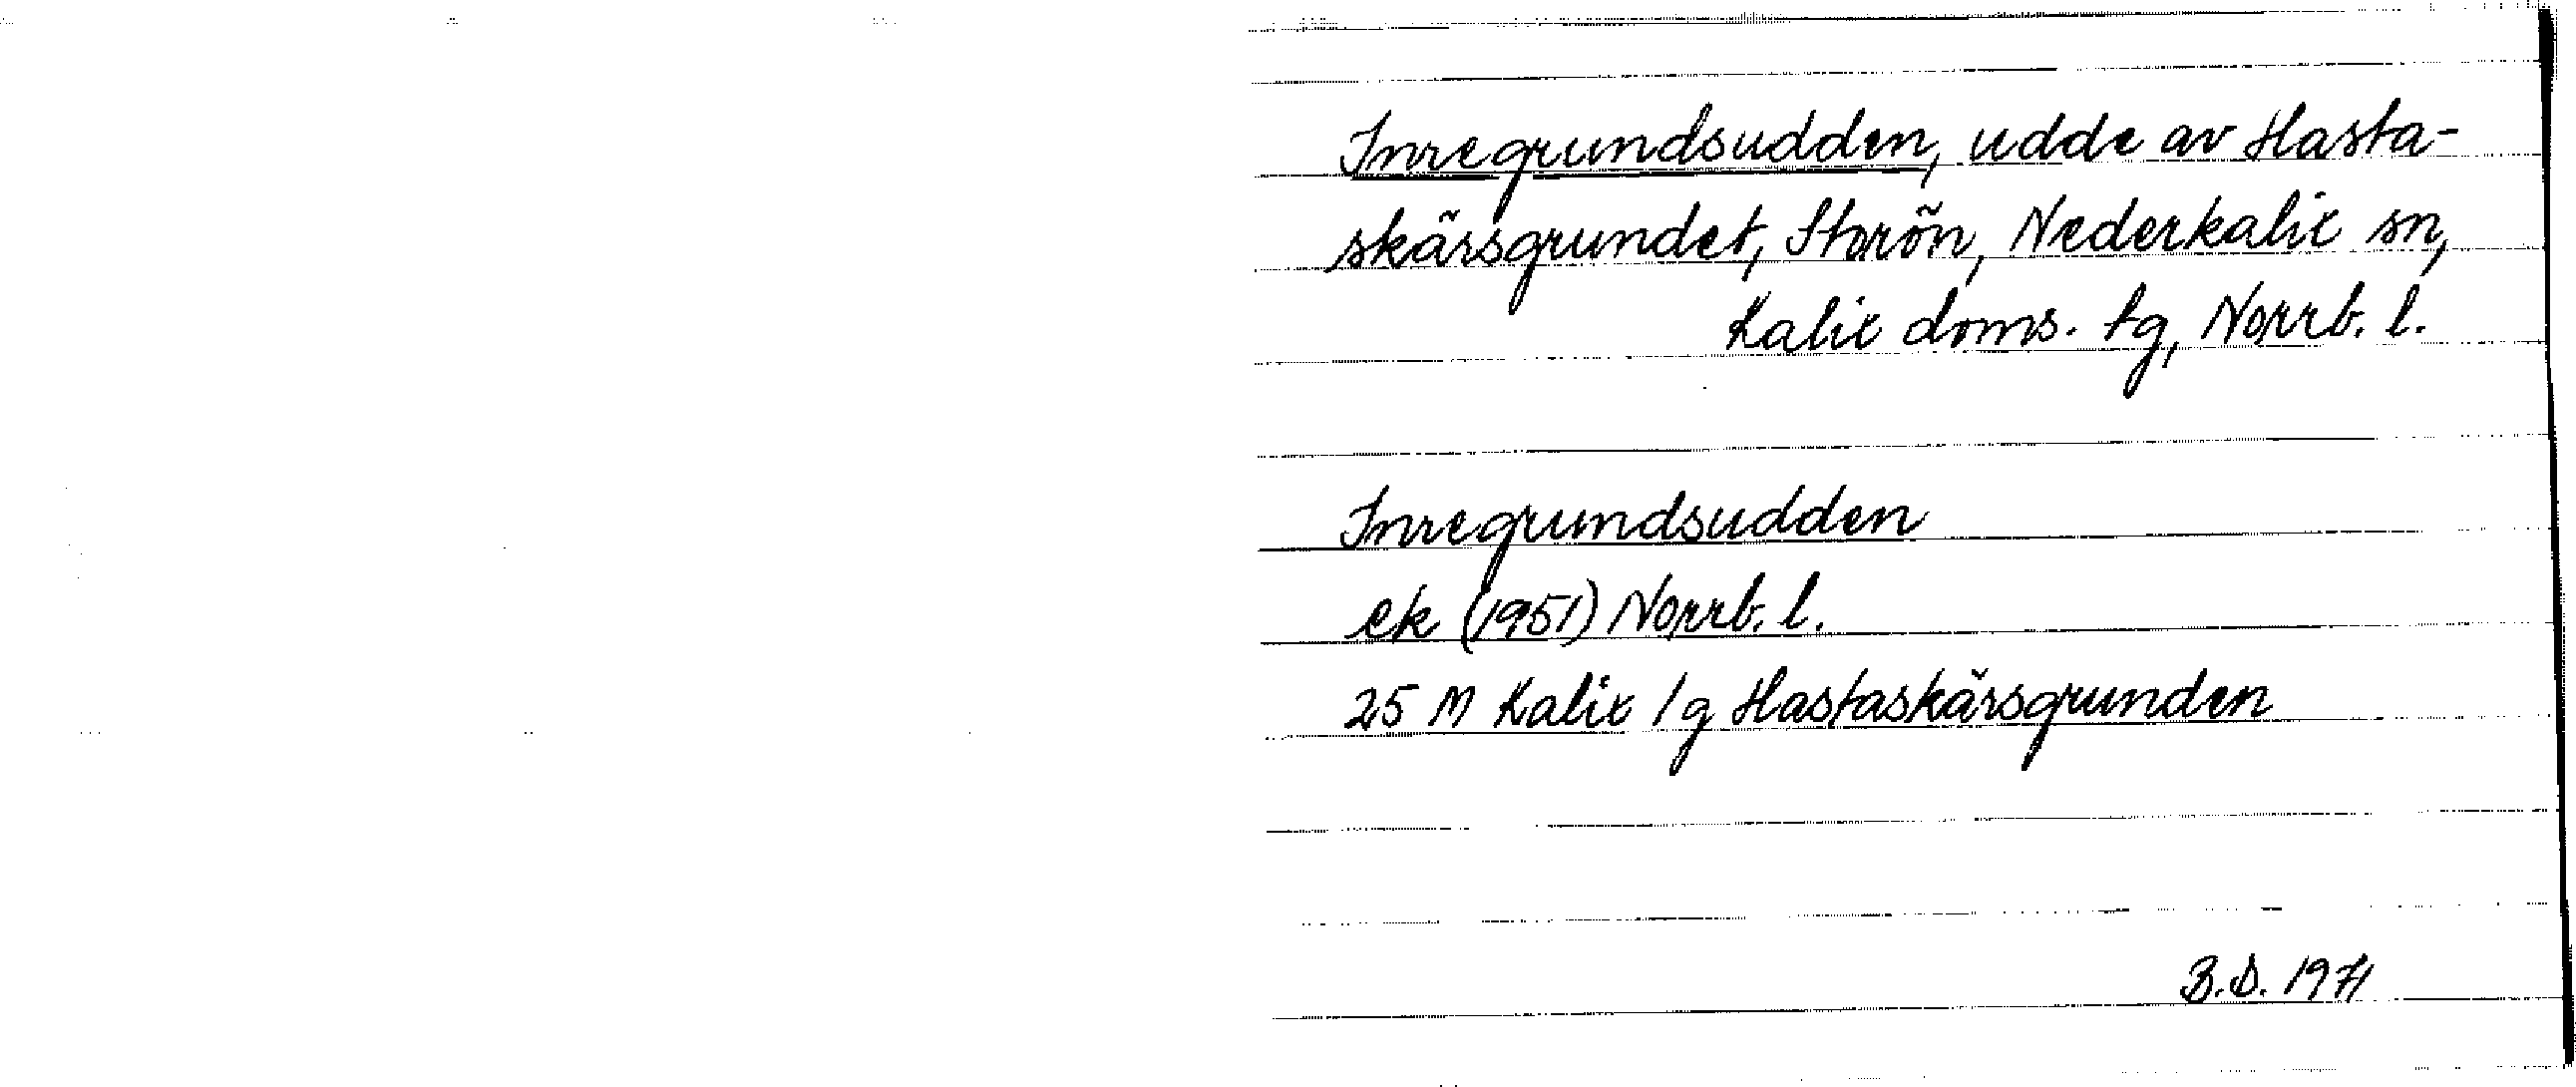 Inregrundsudden, udde av Hasta-
skärsgrundet, Storön, Nederkalix sn,
Kalix doms. tg, Norrb. l.
Inregrundsudden
ek (1951) Norrb. l.
25 M Kalix 1g Hastaskärsgrunden
B.D. 1971